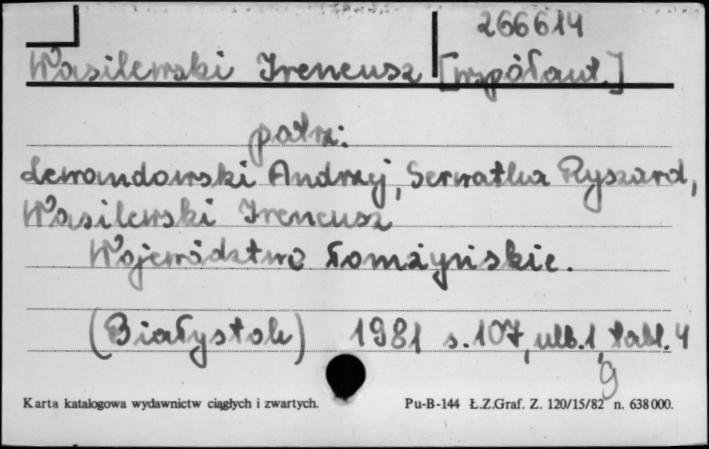 266614
Wasilewski Ireneusz [współaut.]
patrz:
Lewandowski Andrzej, Serwatka Ryszard,
Wasilewski Ireneusz
Województwo łomżyńskie.
(Białystok) 1981 s.107, ulb.1, tabl.4
g
Karta katalogowa wydawnictw ciągłych i zwartych. Pu-B-144 Ł.Z.Graf. Z. 120/15/82 n. 638000.